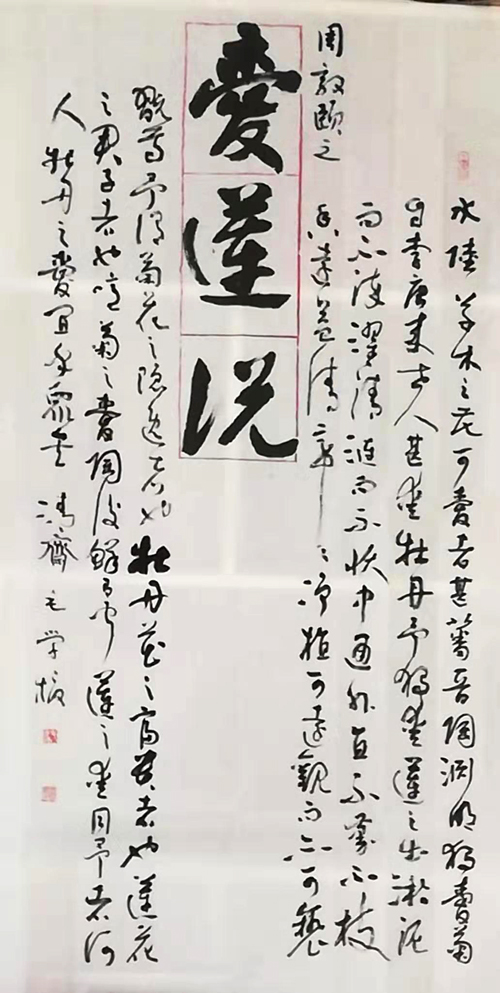 周敦頤之
愛蓮说
水陸草木之花可愛者甚蕃晋陶渊明獨愛菊
自李唐来世人甚愛牡丹予獨愛蓮之出淤泥
而不染濯清漣而不妖中通外直不蔓不枝
香遠益清亭亭净植可遠觀而不可褻
翫焉予谓菊花之隐逸者也牡丹花之富贵者也蓮花
之君子者也噫菊之愛陶後鲜有闻蓮之愛同予者何
人牡丹之愛宜乎眾矣 清齋 毛学振